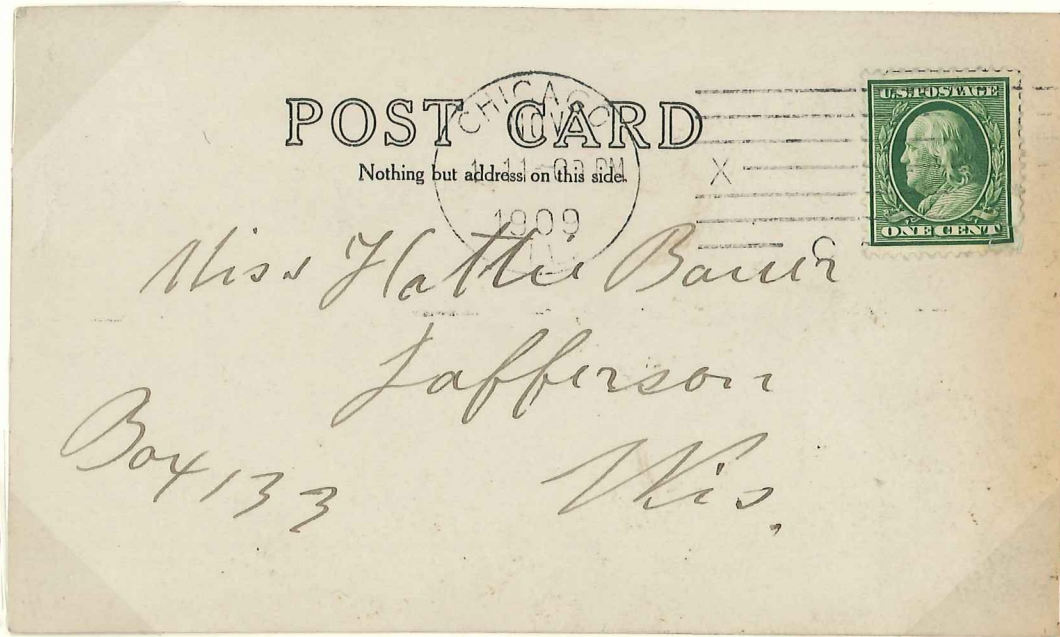 POST CARD
Nothing but address on this side.
CHICAGO
NOV
1 11-
PM
1909
X
C
U.S. POSTAGE
ONE CENT
Miss Hattie Bauer
Jafferson
Box 133
Wis.